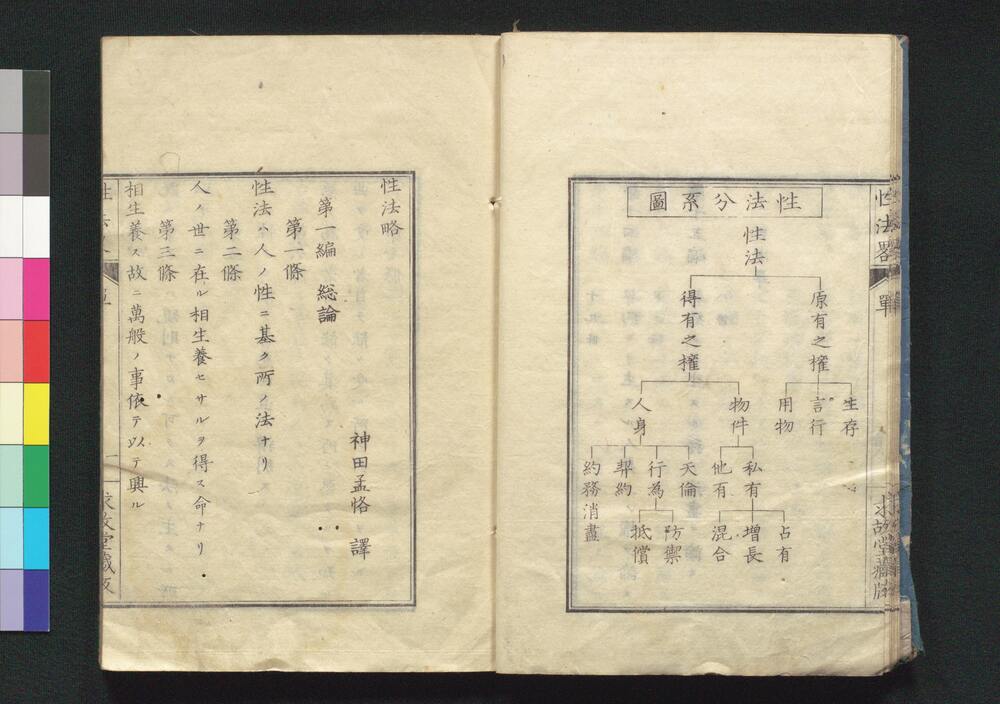 性法分系圖
性法
原有之權
得有之權
生存
言行
用物
物件
人身
私有
他有
天倫
行為
契約
約務消盡
占有
增長
混合
防禦
抵償
性法畧
求故堂藏版
性法略
第一編　総論
神田孟恪　譯
第一條
性法ハ人ノ性ニ基ク所ノ法ナリ
第二條
人ノ世ニ在ル相生養セサルヲ得ス命ナリ
第三條
相生養ス故ニ萬般ノ事依テ以テ興ル